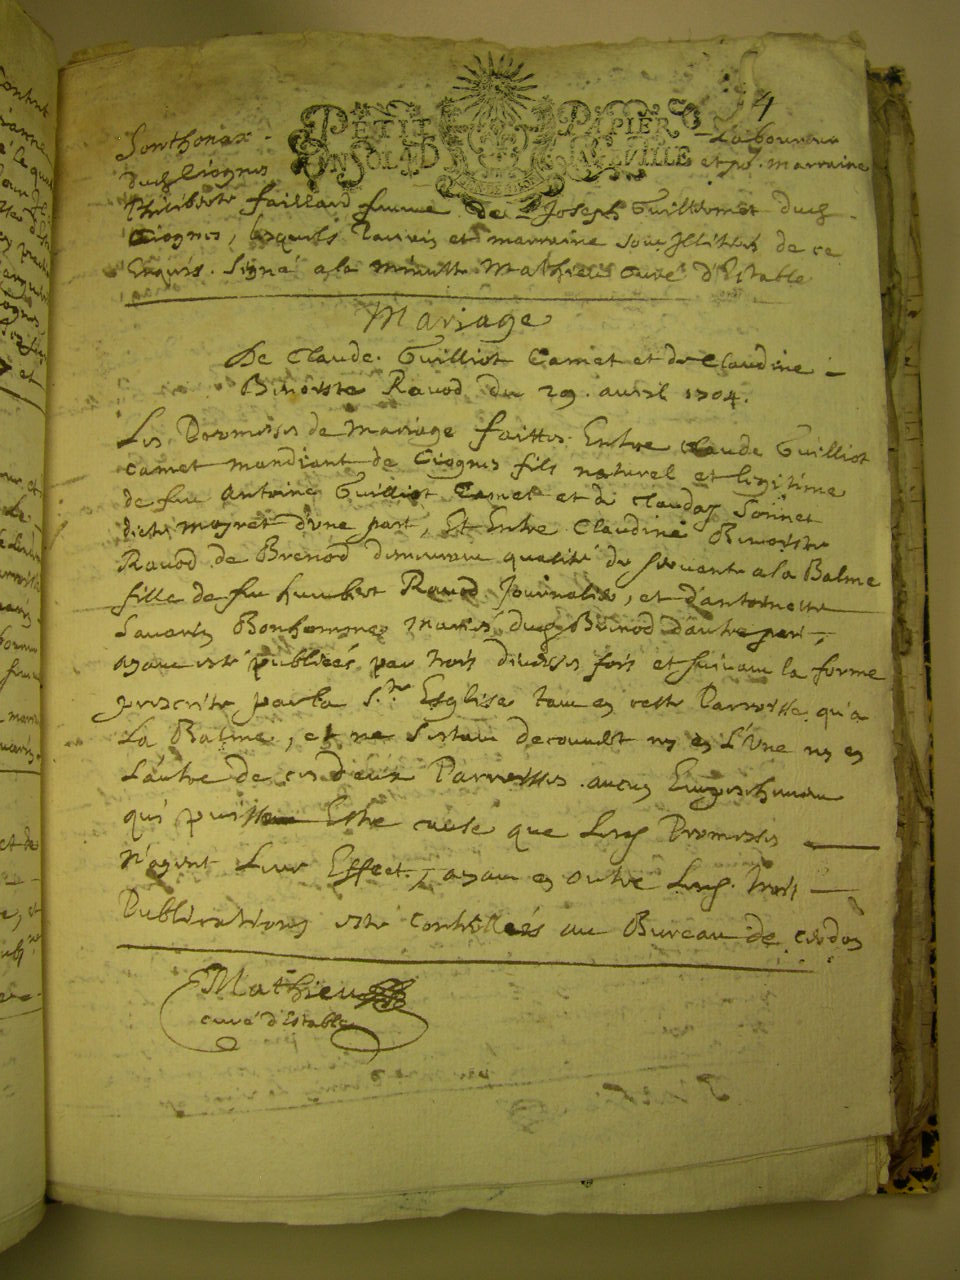 4
PETIT PAPIER
UN SOL LA D
Sonthonax
Laboureur
dud Ciognis
et pr. marraine
Philiberte faillard femme de Joseph Guilliermet dud
Ciognis, lesquels parrin et marraine sont Illitérés de ce
Enquis. Signé a la minutte Mathieu curé d'Estable
Mariage
De Claude. Guilliot Camet et de Claudine
Benoiste Ravod du 29. avril 1704.
Les Promesses de Mariage faittes Entre Claude Guilliot
Camet mandiant de Ciognis fils naturel et legitime
de feu Antoine Guilliot Camet et de Claudaz Sonnet
dicte Moyret d'une part, Et Entre Claudine Benoiste
Ravod de Brenod demeurant qualité de servante a la Balme
fille de feu humbert Ravod Journalier, et d'antoinette
Savarin Bonhomme mariés dud Brenod d'autre part,
ayant esté publiées par trois diverses fois et suivant la forme
prescrite par la Ste Esglise tant en ceste Parroisse qu'a
La Balme, et ne s'estant decouvert ny en L'Une ny en
Lautre de ces deux Parroisses aucun Empeschement
qui puisse Estre cause que Lesd Promesses
n'ayent Leur Effect, ayant en outre Lesd. trois
Publications esté controllées au Bureau de Cerdon
Mathieu
curé d'Estable